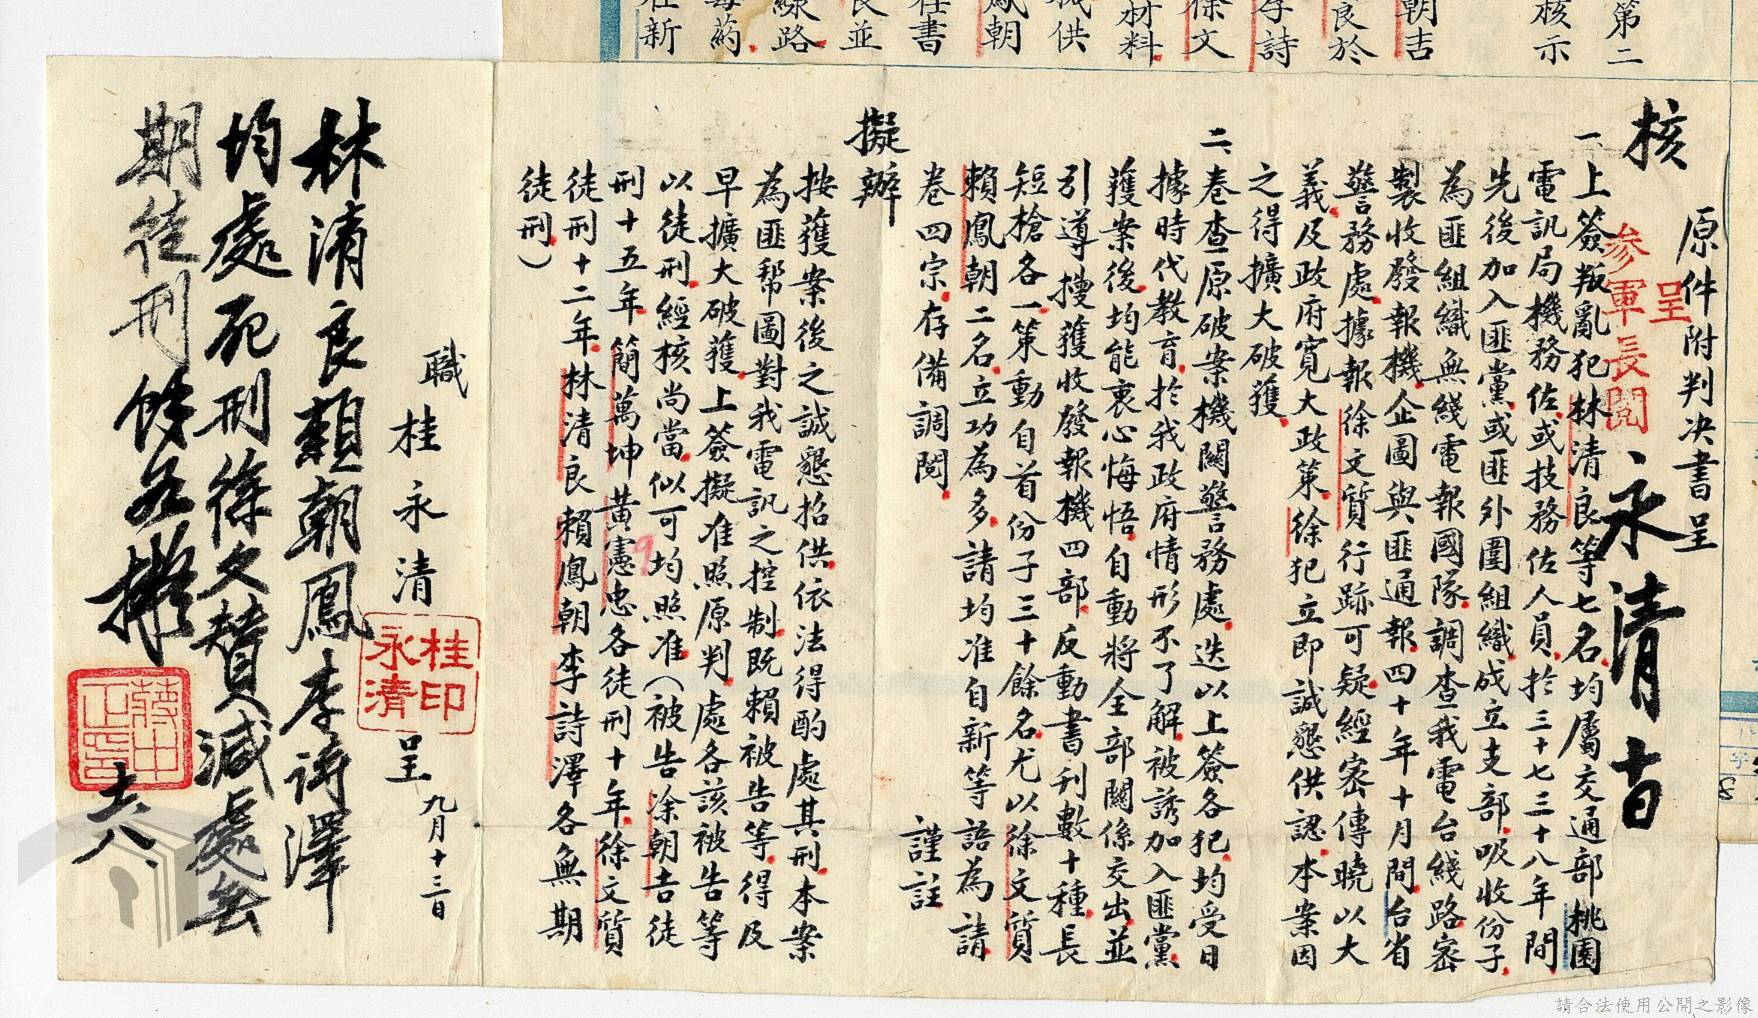 第二
核示
朝吉
良於
李詩
徐文
材料
誠供
鳳朝
任書
良並
線路
每药
在新
原件附判决書呈
呈
參軍長閱
核
永清 十五
一、上簽叛亂犯林清良等七名,均屬交通部桃園
電訊局機務佐,或技務佐人員,於三十七三十八年間
先後加入匪黨,或匪外圍組織,成立支部,吸收份子,
為匪組織無綫電報國隊,調查我電台綫路,密
製收發報機,企圖與匪通報,四十年十月間,台省
警務處,據報徐文質行跡可疑,經密傳曉以大
義,及政府寬大政策,徐犯立即誠懇供認,本案因
之得擴大破獲,
二、卷查原破案機關警務處迭以上簽各犯,均受日
據時代教育,於我政府情形不了解,被誘加入匪黨
獲案後,均能衷心悔悟,自動將全部關係交出,並
引導搜獲收發報機四部,反動書刊數十種,長
短槍各一,策動自首份子三十餘名,尤以徐文質
賴鳳朝二名,立功為多,請均准自新等語為請
卷四宗,存備調閱,
謹註
擬辦
按獲案後之誠懇招供,依法得酌處其刑,本案
為匪幫圖對我電訊之控制,既賴被告等,得及
早擴大破獲,上簽擬准照原判,處各該被告等
以徒刑,經核尚當,似可均照准(被告凃朝吉徒
刑十五年,簡萬坤黃憲忠各徒刑十年,徐文質
徒刑十二年,林清良賴鳳朝李詩澤各無期
徒刑,)
職桂永清呈
九月十三日
桂永清印
林清良賴朝鳳李詩澤
均處死刑徐文贊減處無
期徒刑餘如擬
蔣中正印
十六
請合法使用公開之影像